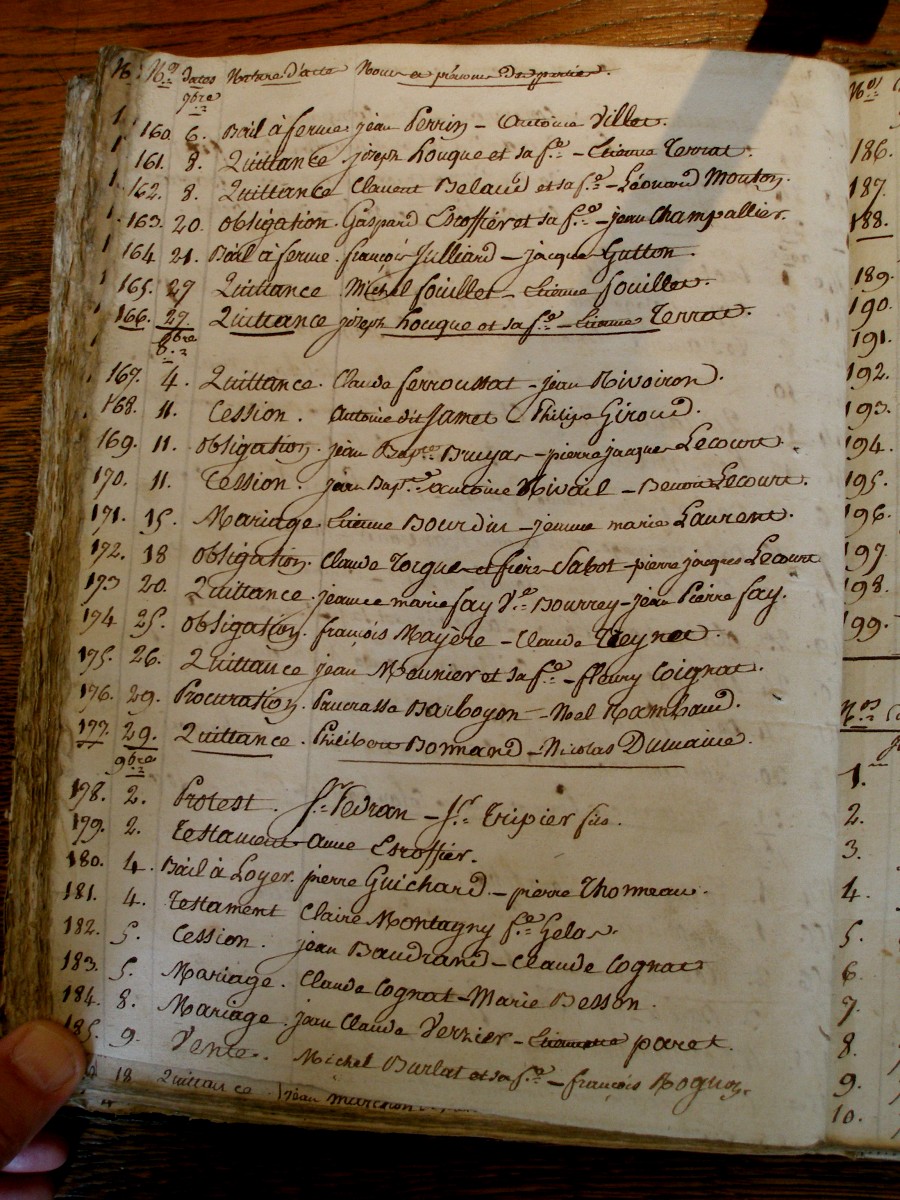 Nos dates Nature d'acte Noms et prénoms des parties.
7bre
160. 6. Bail à ferme. jean Perrin – Antoine Villet.
161. 8. Quittance joseph houque et sa fe. – Etienne Terrat.
162. 8. Quittance Clement Belaud et sa fe. – Léonard Mouton.
163. 20. obligation. Gaspard Escoffier et sa fe. – jean Champallier.
164 21. Bail à ferme. françois Julliand – jacque Gutton.
165. 27 Quittance Michel fouillet – Etienne fouillet.
166. 27. Quittance joseph houque et sa fe. – Etienne Terrat.
8bre
167. 4. Quittance. Claude ferroussat – jean Rivoiron.
168. 11. Cession. Antoine dit Jamet – Philipe Giroud.
169. 11. obligation. jean Bapte. Bruyas – pierre jacques Lecourt.
170. 11. Cession. jean Bapte. antoine Rivail – Benoit Lecourt.
171. 15. Mariage Etienne Bourdin – jeanne marie Laurent.
172. 18 obligation. Claude et Sabot – pierre jacques Lecourt
173 20. Quittance. jeanne marie fay Ve. Bourrey – jean Pierre fay.
174 25. obligation. françois Mayère – Claude Treynet.
175. 26. Quittance jean Meunier et sa fe. – fleury Coignat.
176. 29. Procuration. Pancrasse Barboyon – Noel Rambaud.
177. 29. Quittance. Philibert Bonnand – Nicolas Dumaine.
9bre
178. 2. Protest. Sr. Vedran – Sr. Tripier fils.
179. 2. Testament anne Escoffier.
180. 4. Bail à Loyer. pierre Guichard – pierre Thonneau.
181. 4. Testament Claire Montagny fe. Gelas.
182. 5. Cession. jean Baudrand – Claude Cognat
183. 5. Mariage. Claude Cognat – Marie Besson.
184. 8. Mariage. jean Claude Verzier – paret.
185. 9. Vente. Michel Burlat et sa fe. – françois Rognon.
18 Quittance jean
Nos
186.
187.
188.
189.
190.
191.
192.
193.
194.
195.
196.
197.
198.
199.
Nos
1.
2.
3.
4.
5.
6.
7.
8.
9.
10.